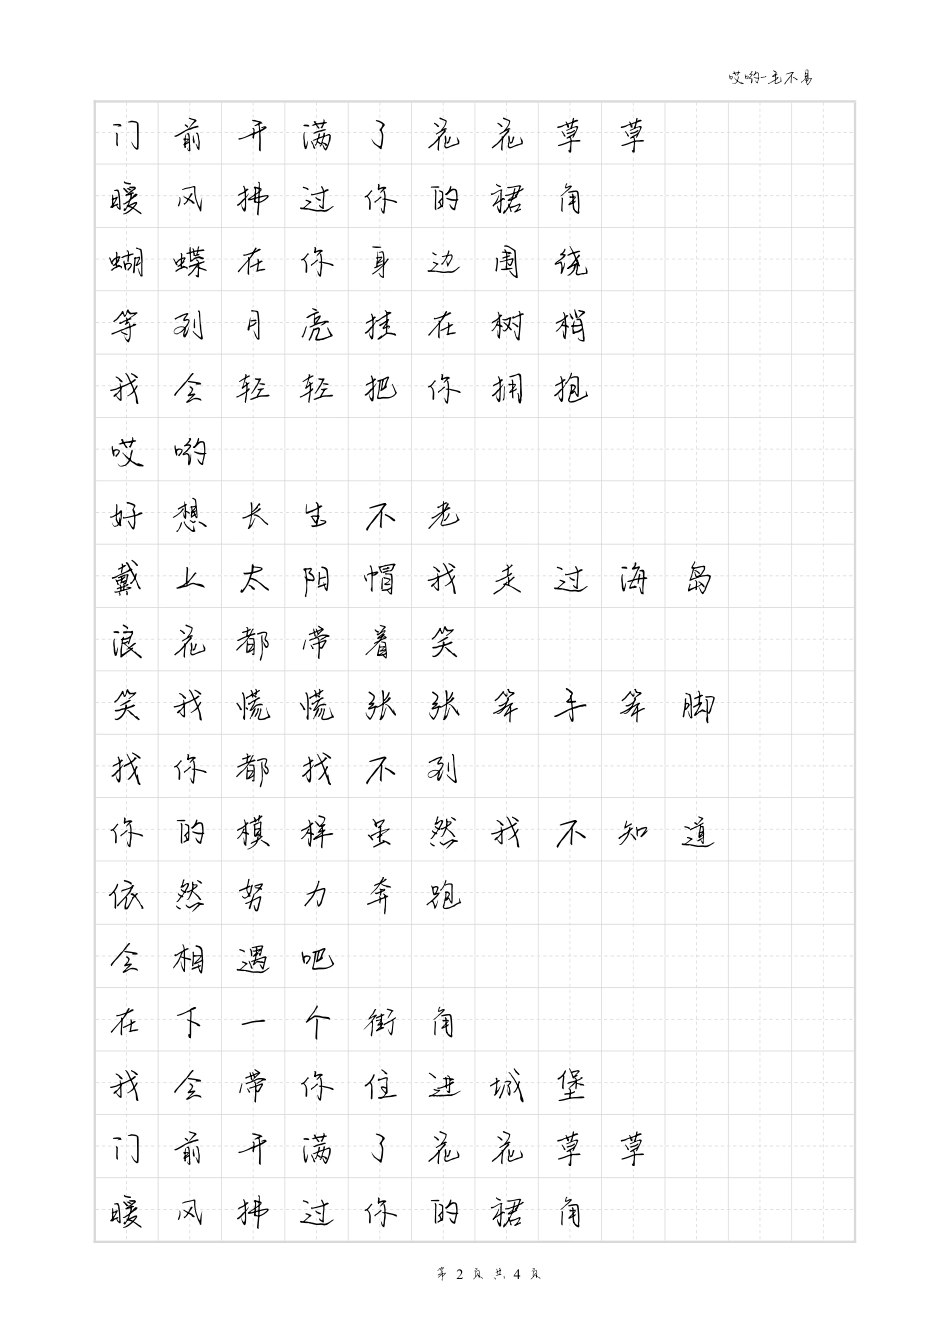 哎哟-毛不易
门前开满了花花草草
暖风拂过你的裙角
蝴蝶在你身边围绕
等到月亮挂在树梢
我会轻轻把你拥抱
哎哟
好想长生不老
戴上太阳帽我走过海岛
浪花都带着笑
笑我慌慌张张笨手笨脚
找你都找不到
你的模样虽然我不知道
依然努力奔跑
会相遇吧
在下一个街角
我会带你住进城堡
门前开满了花花草草
暖风拂过你的裙角
第 2 页 共 4 页